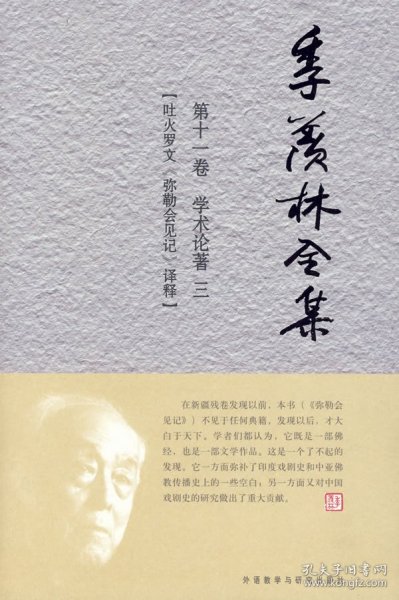 季羡林全集
第十一卷 学术论著 三
【吐火罗文《弥勒会见记》译释】
在新疆残卷发现以前，本书（《弥勒会
见记》）不见于任何典籍，发现以后，才大
白于天下。学者们都认为，它既是一部佛
经，也是一部文学作品。这是一个了不起的
发现。它一方面弥补了印度戏剧史和中亚佛
教传播史上的一些空白；另一方面又对中国
戏剧史的研究做出了重大贡献。
外语教学与研究出版社
孔夫子旧书网